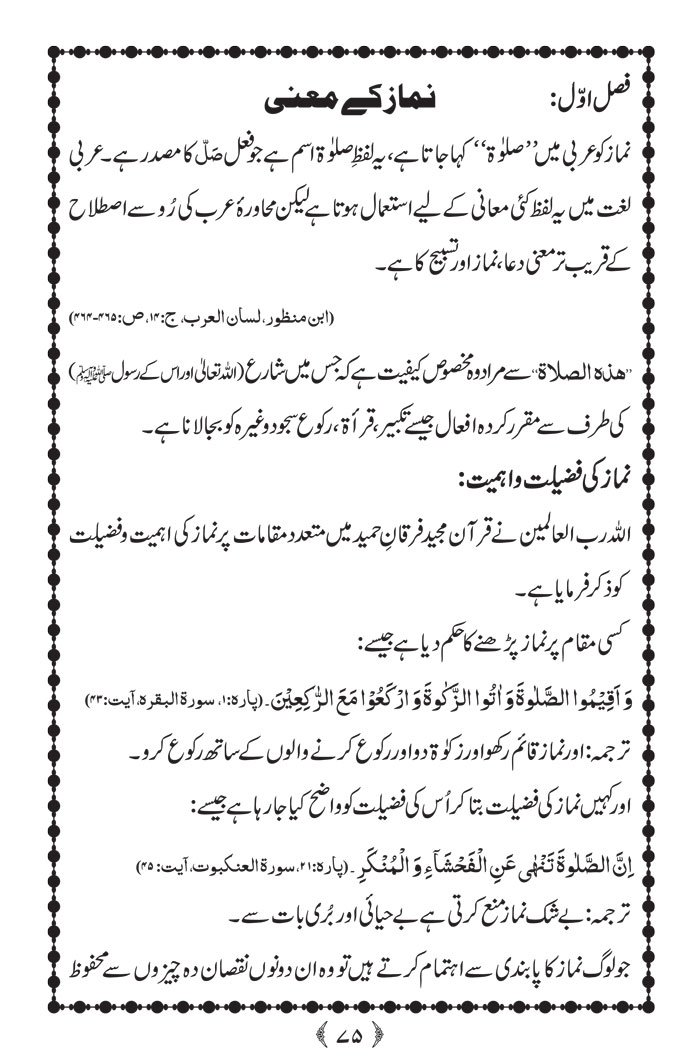 فصل اوّل: نماز کے معنی
نماز کو عربی میں ’’صلوٰۃ‘‘ کہا جاتا ہے، یہ لفظِ صلوٰۃ اسم ہے جو فعل صَلّ کا مصدر ہے۔ عربی
لغت میں یہ لفظ کئی معانی کے لیے استعمال ہوتا ہے لیکن محاورۂ عرب کی رُو سے اصطلاح
کے قریب تر معنی دعا، نماز اور تسبیح کا ہے۔
(ابن منظور، لسان العرب، ج:۱۴، ص:۴۶۵-۴۶۴)
’’ھذہ الصلاۃ‘‘ سے مراد وہ مخصوص کیفیت ہے کہ جس میں شارع (اللہ تعالیٰ اور اس کے رسول ﷺ)
کی طرف سے مقرر کردہ افعال جیسے تکبیر، قرأۃ، رکوع سجود وغیرہ کو بجا لانا ہے۔
نماز کی فضیلت و اہمیت:
اللہ رب العالمین نے قرآن مجید فرقانِ حمید میں متعدد مقامات پر نماز کی اہمیت و فضیلت
کو ذکر فرمایا ہے۔
کسی مقام پر نماز پڑھنے کا حکم دیا ہے جیسے:
وَ اَقِیْمُوا الصَّلٰوۃَ وَ اٰتُوا الزَّکٰوۃَ وَ ارْکَعُوْا مَعَ الرّٰکِعِیْنَ۔ (پارہ:۱، سورۃ البقرہ، آیت:۴۳)
ترجمہ: اور نماز قائم رکھو اور زکوۃ دو اور رکوع کرنے والوں کے ساتھ رکوع کرو۔
اور کہیں نماز کی فضیلت بتا کر اُس کی فضیلت کو واضح کیا جا رہا ہے جیسے:
اِنَّ الصَّلٰوۃَ تَنْھٰی عَنِ الْفَحْشَآءِ وَ الْمُنْکَرِ۔ (پارہ:۲۱، سورۃ العنکبوت، آیت: ۴۵)
ترجمہ: بے شک نماز منع کرتی ہے بے حیائی اور بُری بات سے۔
جو لوگ نماز کا پابندی سے اہتمام کرتے ہیں تو وہ ان دونوں نقصان دہ چیزوں سے محفوظ
۷۵